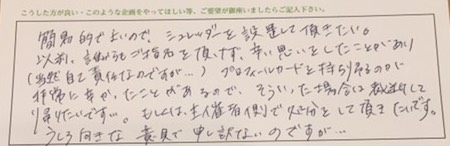 こうした方が良い・このような企画をやってほしい等、ご要望が御座いましたらご記入下さい。
簡易的で良いので、シュレッダーを設置して頂きたい。
以前、誰からもご指名を頂けず、辛い思いをしたことがあり
(当然自己責任なのですが…) プロフィールカードを持ち帰るのが
非常に辛かったことがあるので、そういった場合は裁断して
帰りたいです…。もしくは、主催者側で処分をして頂きたいです。
うしろ向きな意見で申し訳ないのですが…